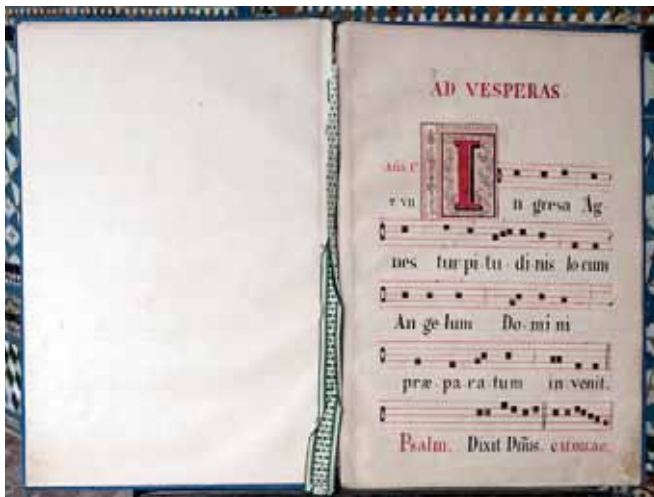 AD VESPERAS
Aña
I n gresa Ag
nes tur pi tu di nis lo cum
An ge lum Do mi ni
præ pa ra tum in venit.
Psalm. Dixit Dñus